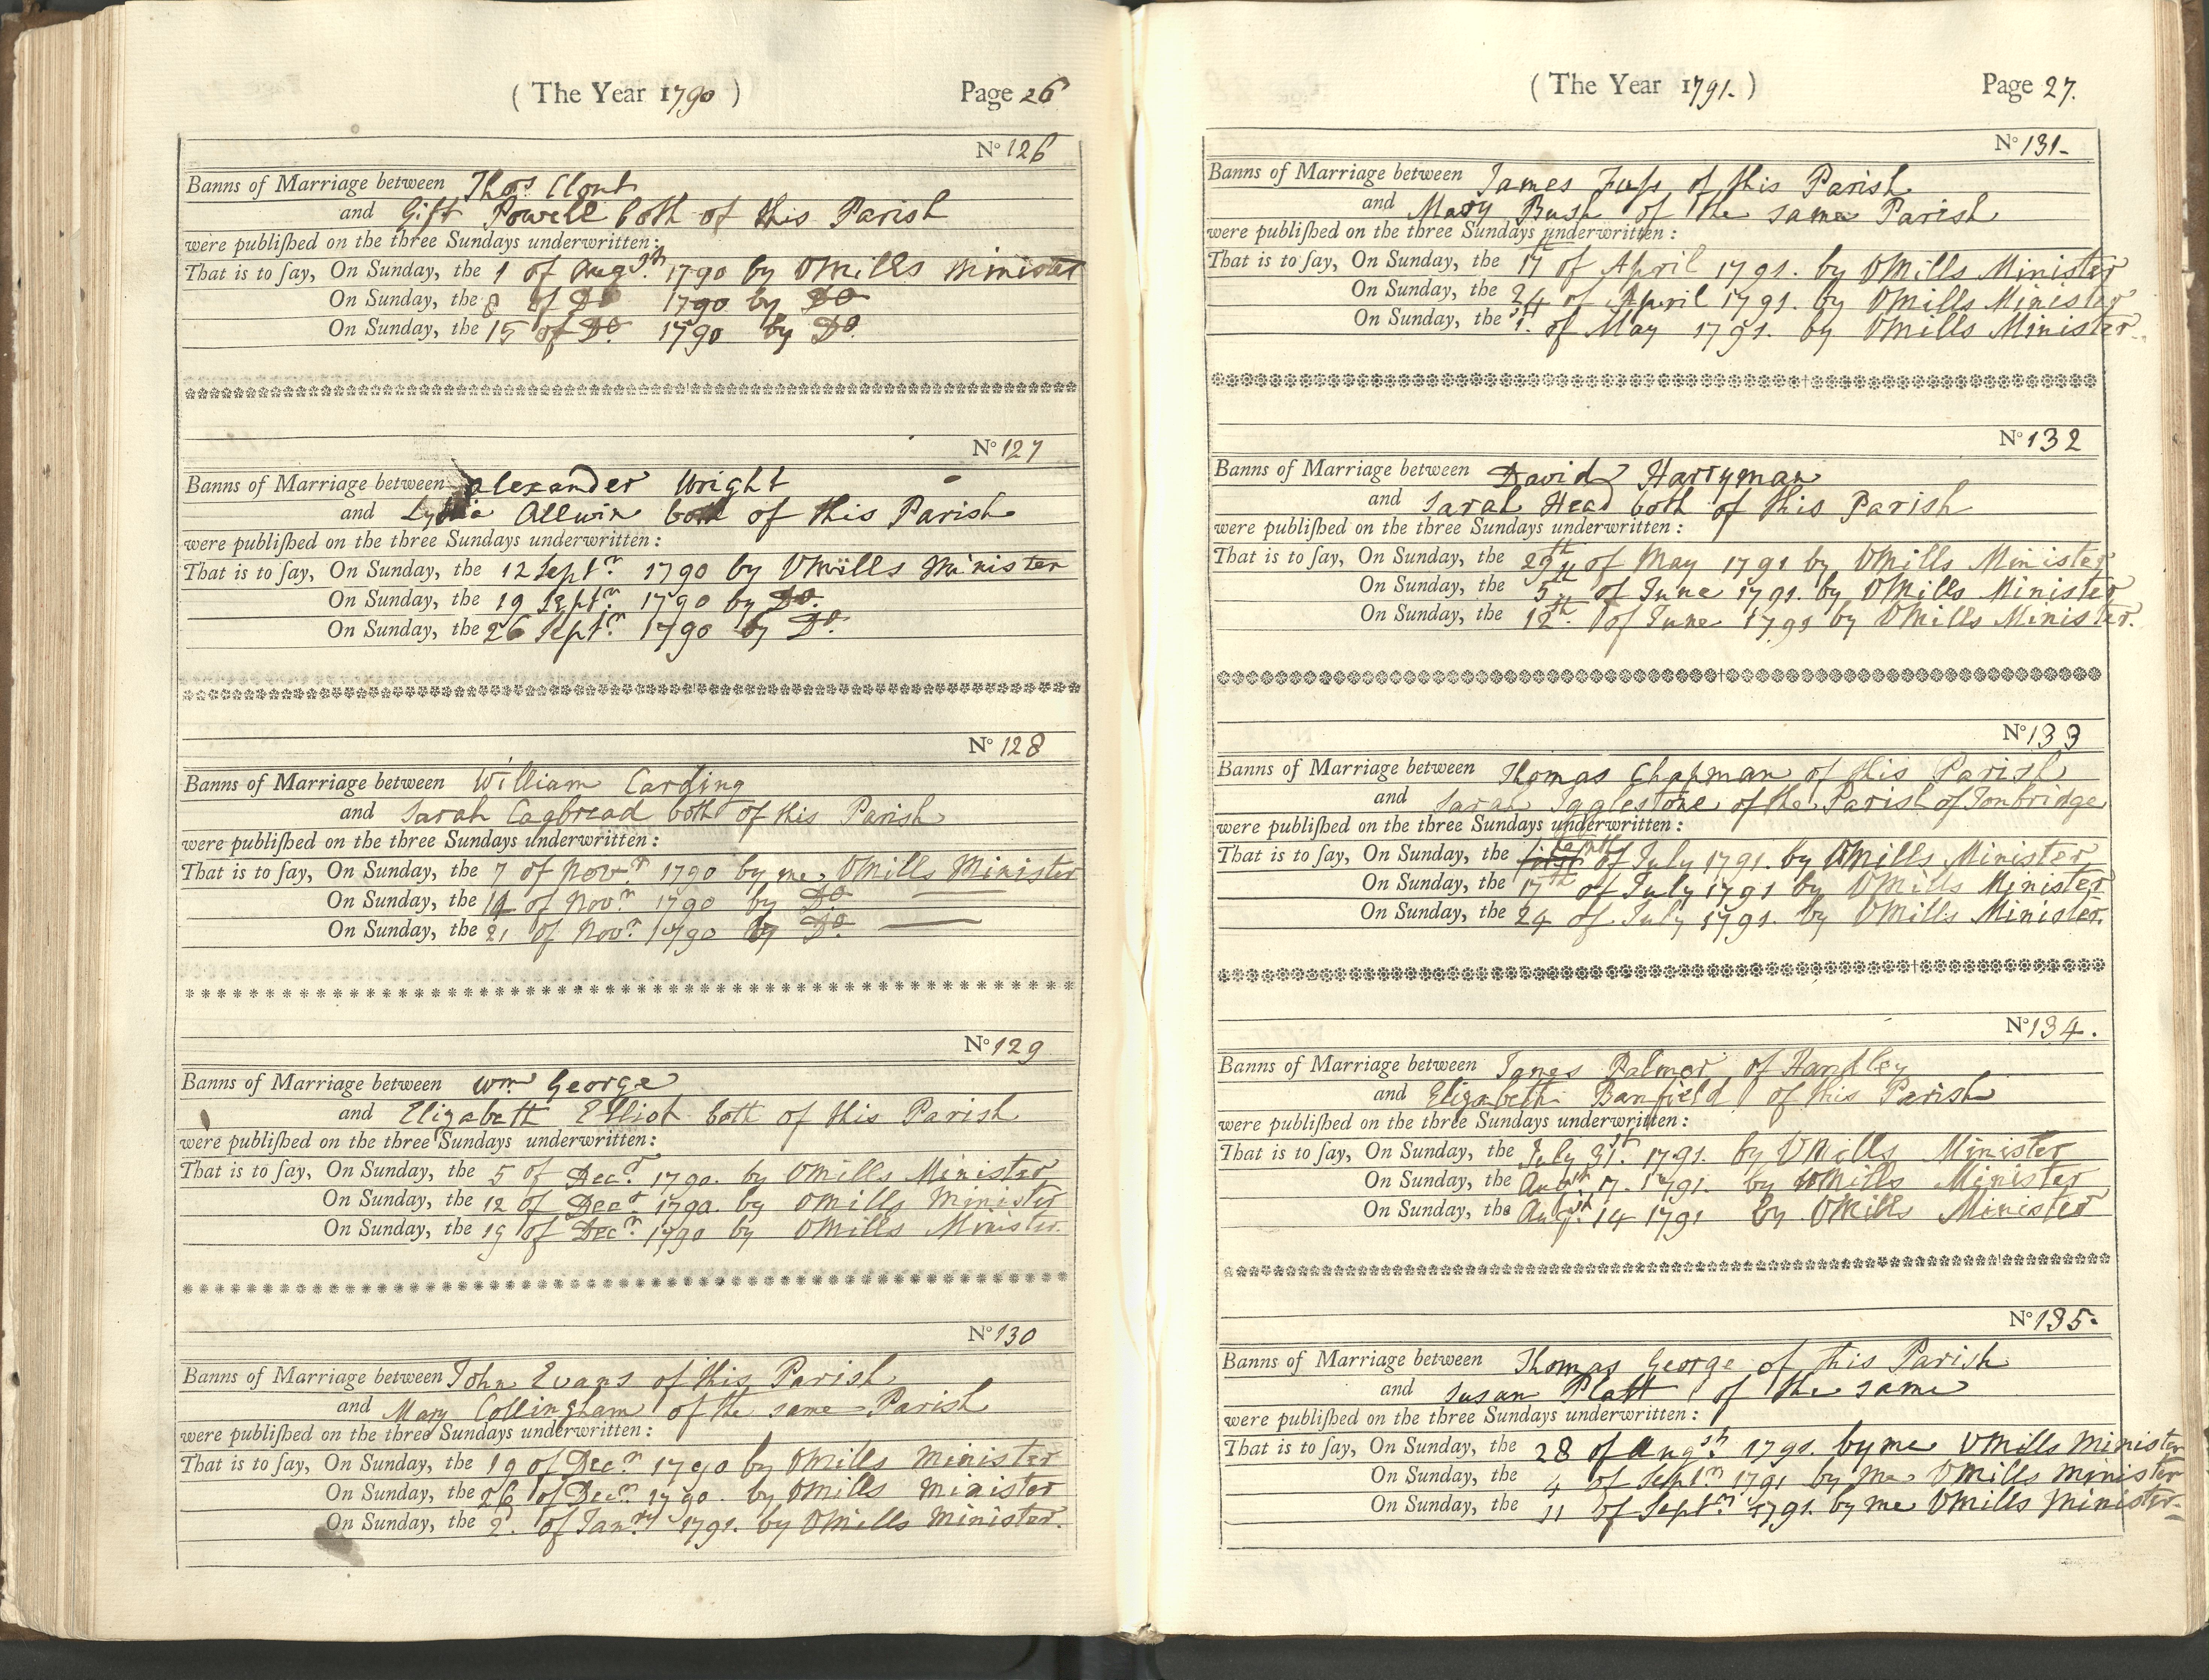 ( The Year 1790 ) Page 26
No 126
Banns of Marriage between Thos Clout
and Gift Powell both of this Parish
were publiſhed on the three Sundays underwritten:
That is to ſay, On Sunday, the 1 of Augst. 1790 by VMills Minister
On Sunday, the 8 of Do 1790 by Do
On Sunday, the 15 of Do. 1790 by Do.
No 127
Banns of Marriage between Alexander Wright
and Lydia Allwin both of this Parish
were publiſhed on the three Sundays underwritten:
That is to ſay, On Sunday, the 12 Septr. 1790 by VMills Minister
On Sunday, the 19 Septr. 1790 by Do.
On Sunday, the 26 Septr. 1790 by Do.
No 128
Banns of Marriage between William Carding
and Sarah Cagbread both of this Parish
were publiſhed on the three Sundays underwritten:
That is to ſay, On Sunday, the 7 of Novr 1790 by me VMills Minister
On Sunday, the 14 of Novr. 1790 by Do.
On Sunday, the 21 of Novr. 1790 by Do.
No 129
Banns of Marriage between Wm George
and Elizabeth Elliot both of this Parish
were publiſhed on the three Sundays underwritten:
That is to ſay, On Sunday, the 5 of Decr 1790. by VMills Minister
On Sunday, the 12 of Decr 1790. by VMills Minister
On Sunday, the 19 of Decr. 1790 by VMills Minister.
No 130
Banns of Marriage between John Evans of this Parish
and Mary Collingham of the same Parish
were publiſhed on the three Sundays underwritten:
That is to ſay, On Sunday, the 19 of Decr. 1790 by VMills Minister
On Sunday, the 26 of Decr. 1790. by VMills Minister
On Sunday, the 2. of Janry 1791. by VMills Minister.
( The Year 1791. ) Page 27.
No 131-
Banns of Marriage between James Fuſs of this Parish
and Mary Bush of the same Parish
were publiſhed on the three Sundays underwritten:
That is to ſay, On Sunday, the 17th of April 1791. by VMills Minister
On Sunday, the 24 of April 1791. by VMills Minister
On Sunday, the 1st. of May 1791. by VMills Minister.
No 132
Banns of Marriage between David Harryman
and Sarah Head both of this Parish
were publiſhed on the three Sundays underwritten:
That is to ſay, On Sunday, the 29th of May 1791 by VMills Minister
On Sunday, the 5th of June 1791. by VMills Minister
On Sunday, the 12th. of June 1791 by VMills Minister.
No 133
Banns of Marriage between Thomas Chapman of this Parish
and Sarah Igglestone of the Parish of Tonbridge
were publiſhed on the three Sundays underwritten:
That is to ſay, On Sunday, the first tenth of July 1791. by VMills Minister
On Sunday, the 17th of July 1791 by VMills Minister
On Sunday, the 24 of July 1791. by VMills Minister.
No 134.
Banns of Marriage between James Palmer of Handley
and Elizabeth Banfield of this Parish
were publiſhed on the three Sundays underwritten:
That is to ſay, On Sunday, the July 31st. 1791. by VMills Minister
On Sunday, the Augst 7. 1791. by VMills Minister
On Sunday, the Augst. 14 1791 by VMills Minister
No 135.
Banns of Marriage between Thomas George of this Parish
and Susan Platt of the same
were publiſhed on the three Sundays underwritten:
That is to ſay, On Sunday, the 28 of Augst. 1791. by me VMills Minister
On Sunday, the 4 of Septr 1791 by Me VMills Minister
On Sunday, the 11 of Septr 1791. by me VMills Minister.